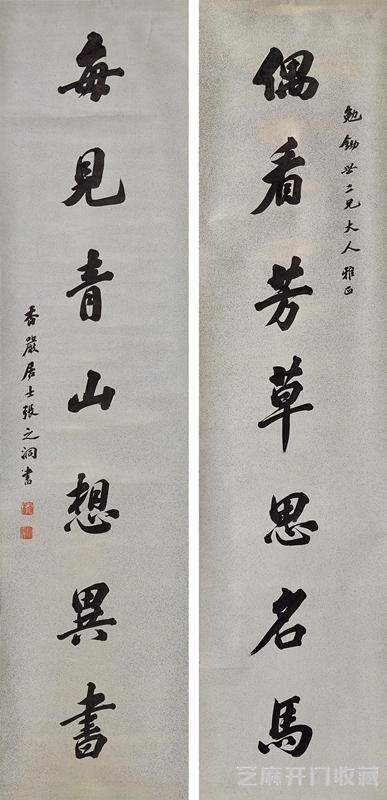 偶看芳草思名马
勉鋤世二兄大人雅正
每見青山想異書
香嚴居士張之洞書
芝麻开门收藏